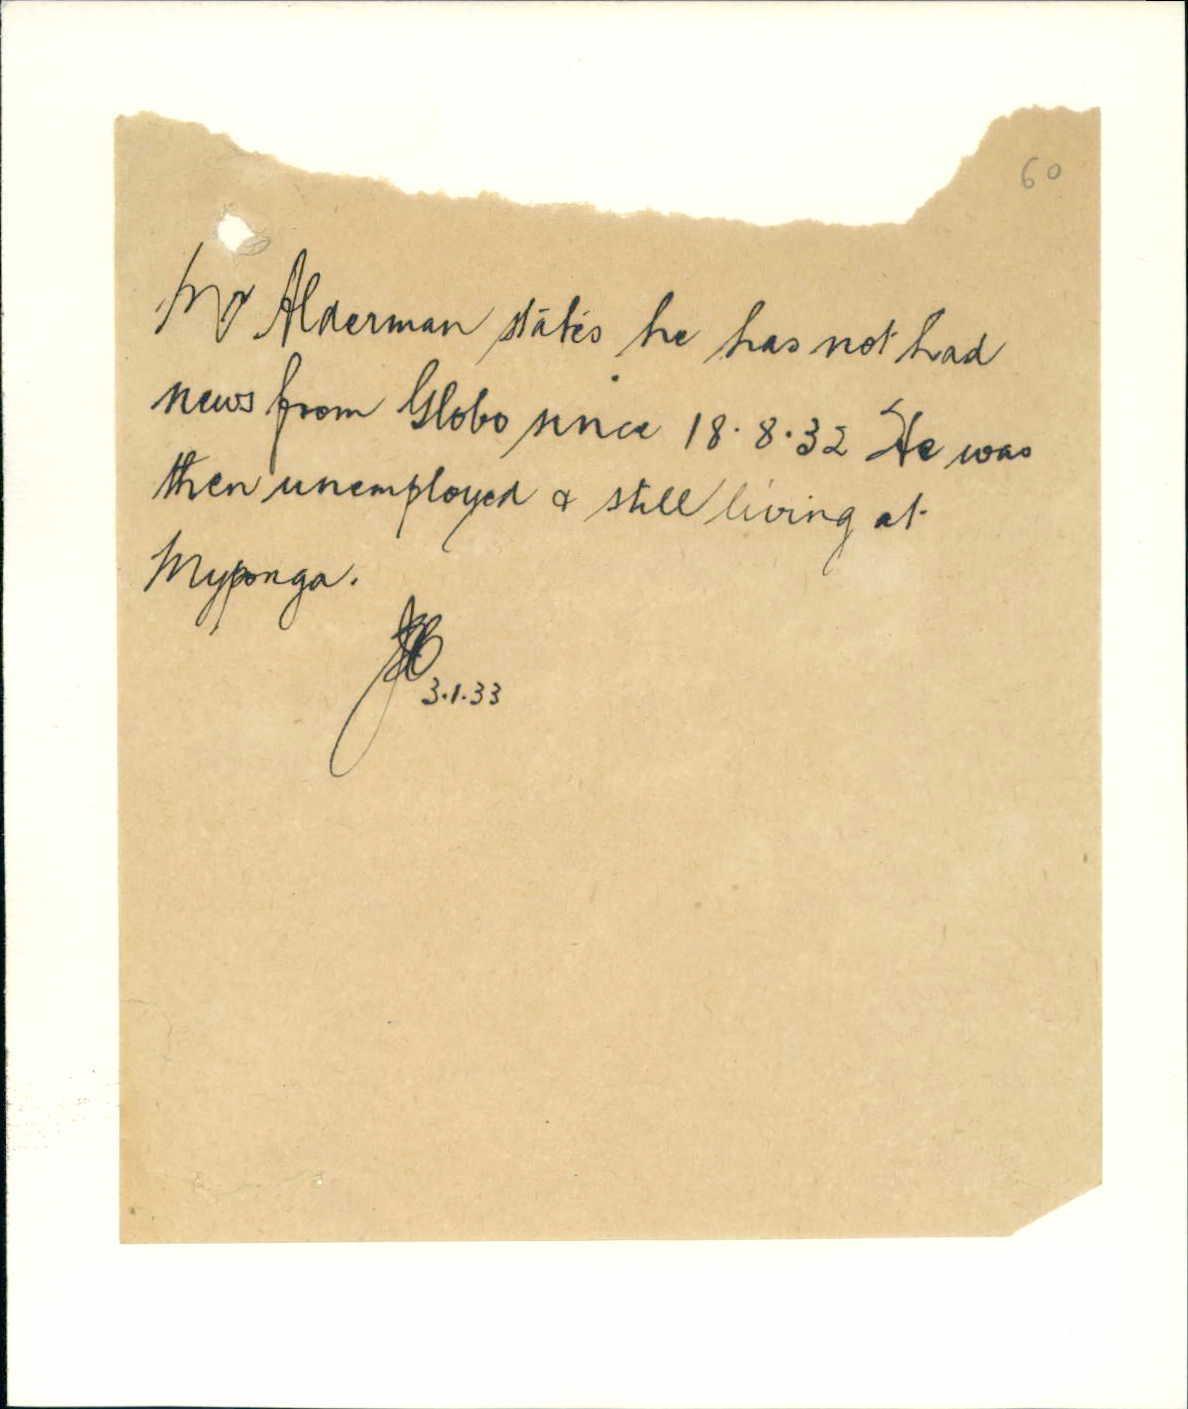 60
Mr Alderman states he has not had
news from Globo since 18.8.32 He was
then unemployed & still living at
Myponga.
3.1.33